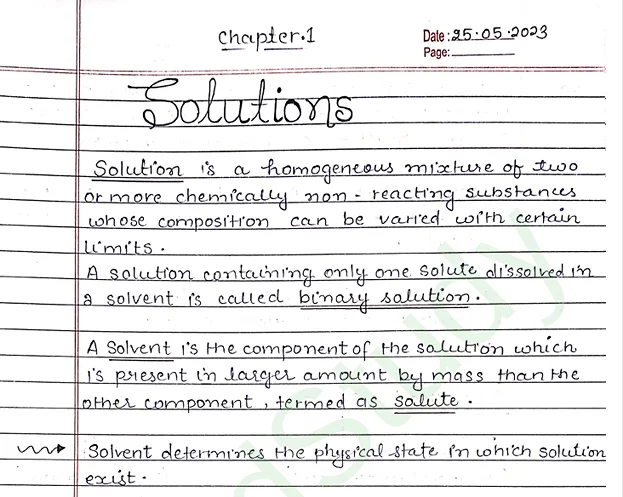 Chapter.1
Date: 25.05.2023
Page:
Solutions
Solution is a homogeneous mixture of two
or more chemically non-reacting substances
whose composition can be varied with certain
limits.
A solution containing only one solute dissolved in
a solvent is called binary solution.
A Solvent is the component of the solution which
is present in larger amount by mass than the
other component, termed as salute.
Solvent determines the physical state in which solution
exist.